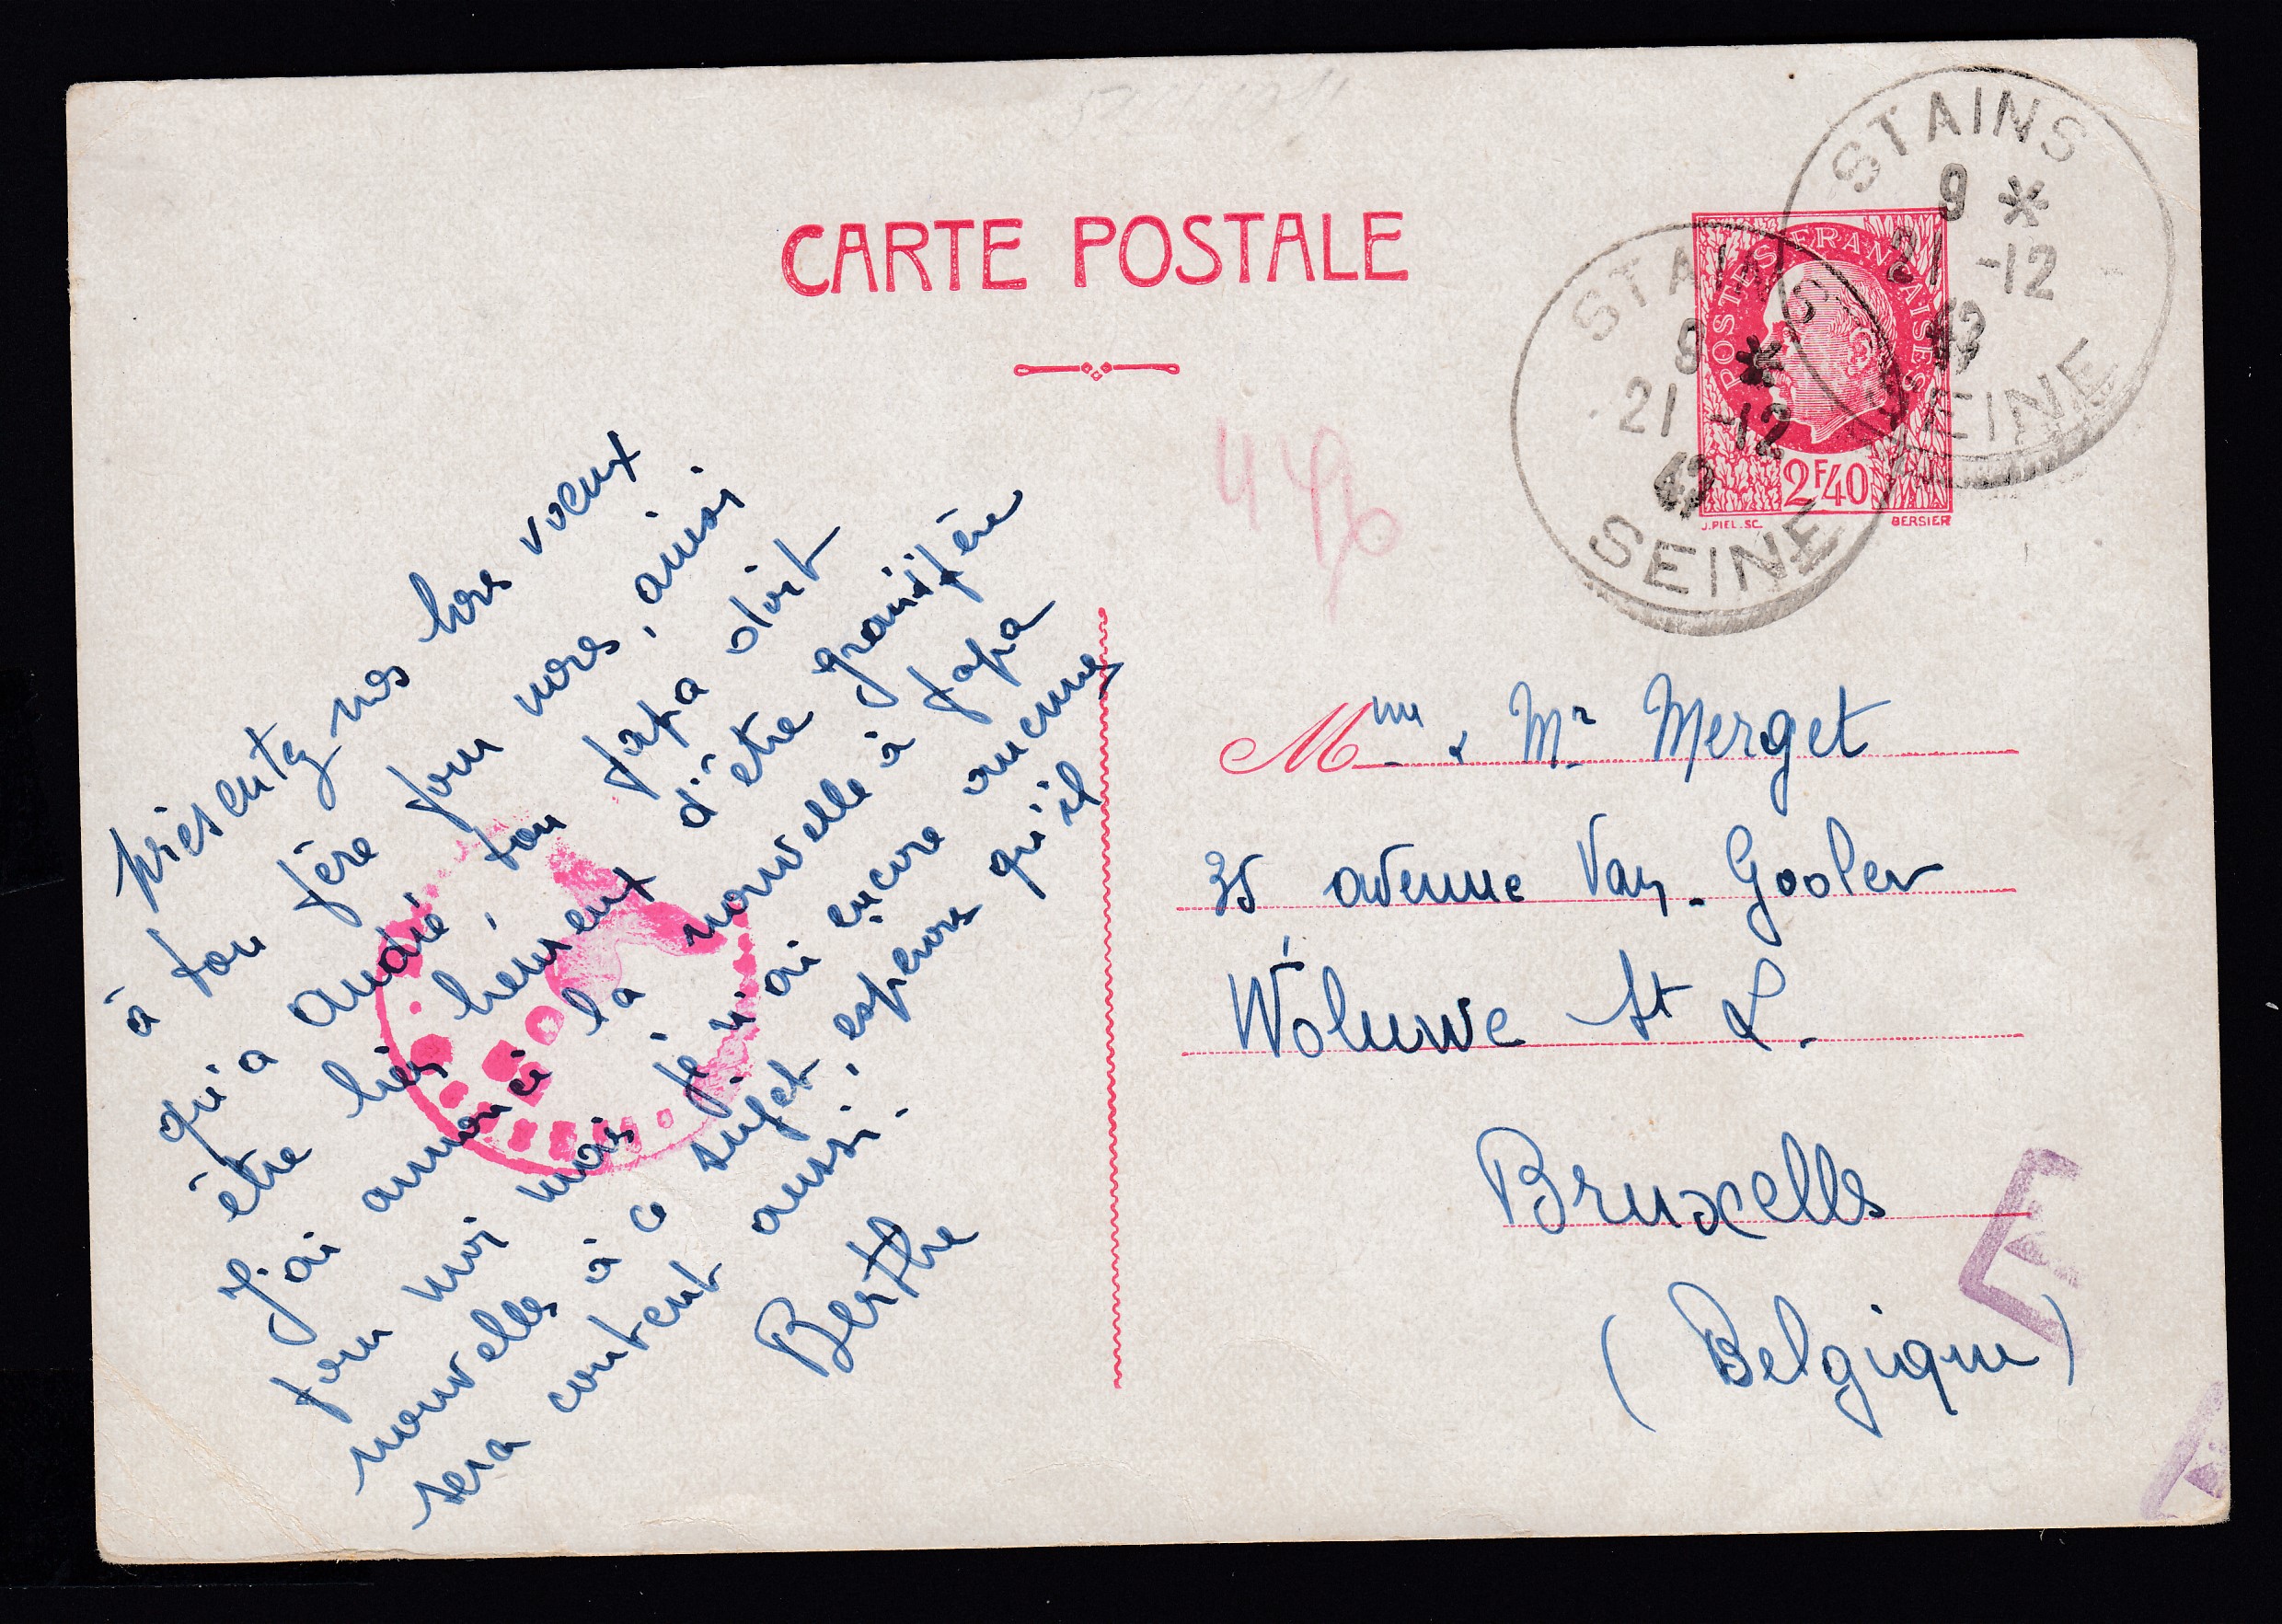 CARTE POSTALE
STAINS
9 *
21 -12
42
SEINE
STAINS
9 *
21 -12
SEINE
POSTES FRANÇAISES
2F40
J.PIEL.SC.
BERSIER
présentez nos bons voeux
à ton père pour nous, ainsi
qu'a André, ton papa doit
être bien heureux d'être grand'père
J'ai annoncé la nouvelle à papa
pour moi mais je n'ai encore aucune
nouvelle à ce sujet, espérons qu'il
sera content aussi.
Berthe
Mme & Mr Merget
35 avenue Van Goolen
Woluwe St L.
Bruxelles
(Belgique)
E